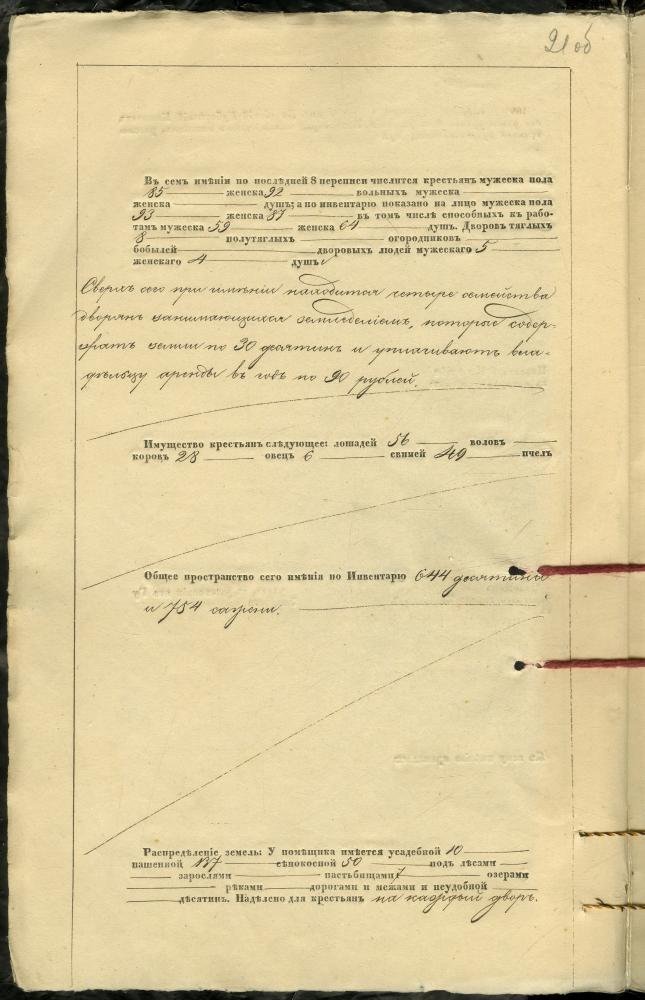 21 об
Въ семъ имѣніи по послѣдней 8 переписи числится крестьянъ мужеска пола
85 женска 92 вольныхъ мужеска
женска душъ; а по инвентарю показано на лицо мужеска пола
93 женска 87 въ томъ числѣ способныхъ къ рабо-
тамъ мужеска 59 женска 64 душъ. Дворовъ тяглыхъ
8 полутяглыхъ огородниковъ
бобылей дворовыхъ людей мужескаго 5
женскаго 4 душъ
Сверхъ сего при имѣніи находится четыре семейства
дворянъ занимающихся земледѣліемъ, которые содер-
жатъ земли по 30 десятинъ и уплачиваютъ вла-
дѣльцу аренды въ годъ по 90 рублей.
Имущество крестьянъ слѣдующее: лошадей 56 воловъ
коровъ 28 овецъ 6 свиней 49 пчелъ
Общее пространство сего имѣнія по Инвентарю 644 десятины
и 754 сажени.
Распредѣленіе земель: У помѣщика имѣется усадебной 10
пашенной 137 сѣнокосной 50 подъ лѣсами
зарослями пастьбищами озерами
рѣками дорогами и межами и неудобной
десятинъ. Надѣлено для крестьянъ на каждый дворъ.